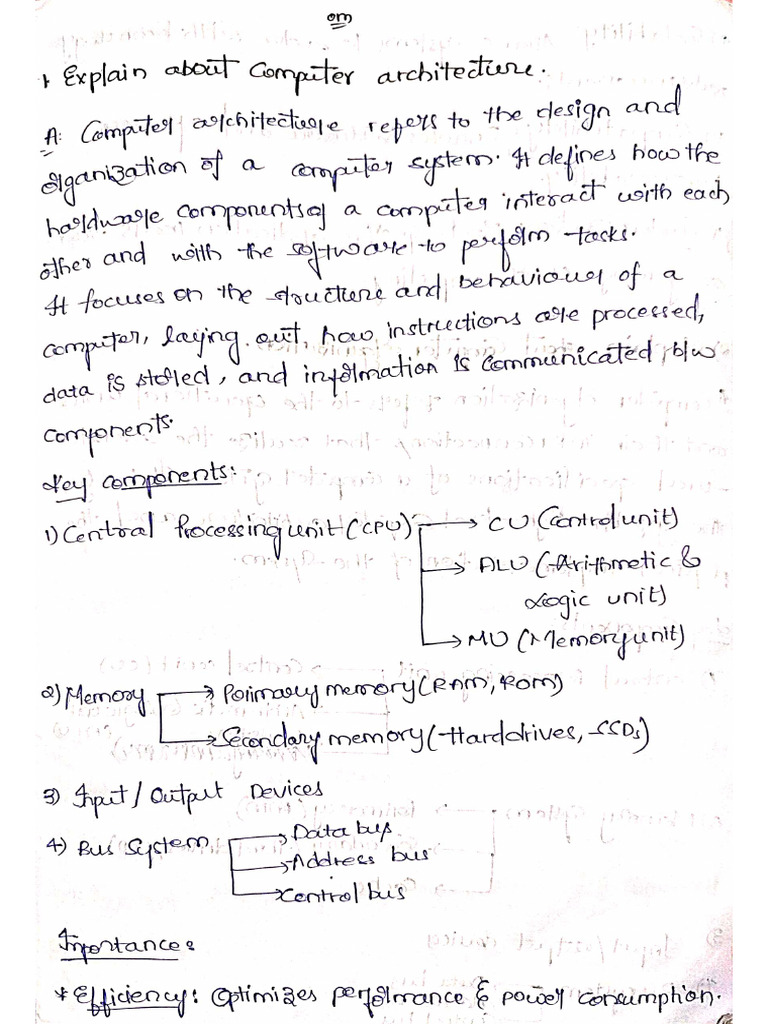 om
1 Explain about Computer architecture.
A: Computer architecture refers to the design and
organization of a computer system. It defines how the
hardware components of a computer interact with each
other and with the software to perform tasks.
It focuses on the structure and behaviour of a
computer, laying out, how instructions are processed,
data is stored, and information is communicated b/w
components.
Key components:
1) Central Processing unit (CPU) → CU (Control unit)
→ ALU (Arithmetic &
Logic unit)
→ MU (Memory unit)
2) Memory → Primary memory (RAM, ROM)
→ Secondary memory (Hard drives, SSDs)
3) Input / Output Devices
4) Bus System → Data bus
→ Address bus
→ Control bus
Importance:
* Efficiency: Optimizes performance & power consumption.